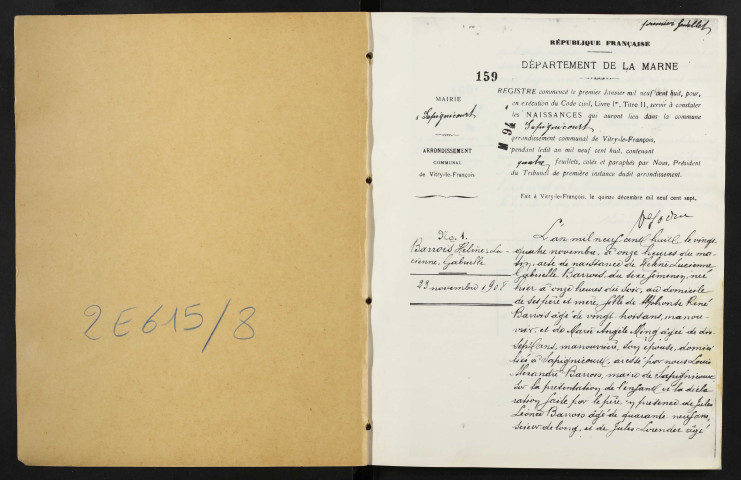 2E615/8
premier feuillet
RÉPUBLIQUE FRANÇAISE
DÉPARTEMENT DE LA MARNE
159
MAIRIE
Sapignicourt
ARRONDISSEMENT
COMMUNAL
de Vitry-le-François
REGISTRE commencé le premier Janvier mil neuf cent huit, pour,
en exécution du Code civil, Livre Ier, Titre II, servir à constater
les NAISSANCES qui auront lieu dans la commune
Sapignicourt
arrondissement communal de Vitry-le-François,
pendant ledit an mil neuf cent huit, contenant
quatre feuillets, cotés et paraphés par Nous, Président
du Tribunal de première instance dudit arrondissement.
Fait à Vitry-le-François, le quinze décembre mil neuf cent sept.
No. 1.
Barrois Hélène, Lu-
cienne, Gabrielle
23 novembre 1908
L'an mil neuf cent huit, le vingt
quatre novembre, à onze heures du ma-
tin, acte de naissance de Hélène Lucienne
Gabrielle Barrois, du sexe féminin, née
hier à onze heures du soir, au domicile
de ses père et mère, fille de Alphonse René
Barrois âgé de vingt trois ans, manou-
vrier, et de Marie Angèle Ming âgée de dix
sept ans, manouvrière, son épouse, domici-
liés à Sapignicourt, dressé par nous Louis
Alexandre Barrois, maire de Sapignicourt
sur la présentation de l'enfant et la décla-
ration faite par le père, en présence de Jules
Léonce Barrois âgé de quarante neuf ans,
scieur de long, et de Jules Lorendet âgé